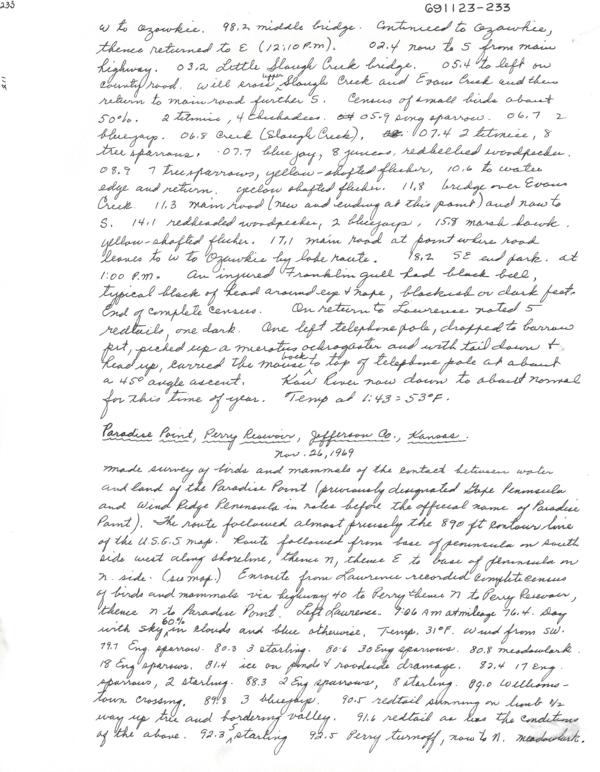 233
691123-233
211
W to Ozawkie. 98.2 middle bridge. Continued to Ozawkie,
thence returned to E (12:10 P.M). 02.4 now to S from main
highway. 03.2 Little Slough Creek bridge. 05.4 to left on
county road. Will cross upper Slough Creek and Evans Creek and then
return to main road further S. Census of small birds about
50%. 2 titmice, 4 chickadees. 05.9 song sparrow. 06.7 2
bluejays. 06.8 Creek (Slough Creek), 07.4 2 titmice, 8
tree sparrows. 07.7 blue jay, 8 juncos, redbellied woodpecker.
08.9 7 tree sparrows, yellow-shafted flicker, 10.6 to water
edge and return. yellow shafted flicker. 11.8 bridge over Evans
Creek. 11.3 main road (new and ending at this point) and now to
S. 14.1 redheaded woodpecker, 2 bluejays, 15.8 marsh hawk.
yellow-shafted flicker. 17.1 main road at point where road
leaves to W to Ozawkie by lake route. 18.2 SE end park. at
1:00 P.M. An injured Franklin gull had black bill,
typical black of head around eye & nape, blackish or dark feet.
End of complete census. On return to Lawrence noted 5
redtails, one dark. One left telephone pole, dropped to barrow
pit, picked up a microtus ochrogaster and with tail down &
head up, carried the mouse back to top of telephone pole at about
a 45° angle ascent. Kaw River now down to about normal
for this time of year. Temp at 1:43 = 53°F.
Paradise Point, Perry Resevoir, Jefferson Co., Kansas.
Nov. 26, 1969
Made survey of birds and mammals of the contact between water
and land of the Paradise Point (previously designated Gape Peninsula
and Wind Ridge Peninsula in notes before the official name of Paradise
Point). The route followed almost precisely the 890 ft contour line
of the U.S.G.S map. Route followed from base of peninsula on south
side west along shoreline, thence N, thence E to base of peninsula on
N. side. (see map.) Enroute from Lawrence recorded complete census
of birds and mammals via highway 40 to Perry thence N to Perry Resevoir,
thence N to Paradise Point. Left Lawrence 7:06 AM at mileage 76.4. Day
with sky 60% in clouds and blue otherwise, Temp. 31°F. Wind from SW.
79.7 Eng. sparrow. 80.3 3 starling. 80.6 30 Eng sparrows. 80.8 meadowlark.
18 Eng sparrows. 81.4 ice on ponds & roadside drainage. 82.4 17 Eng.
sparrows, 2 starling. 88.3 2 Eng sparrows, 8 starling. 89.0 Williams-
town crossing. 89.8 3 bluejays. 90.5 redtail sunning on limb 1/2
way up tree and bordering valley. 91.6 redtail as was the condition
of the above. 92.3 5 starling 92.5 Perry turnoff, now to N. meadowlark.